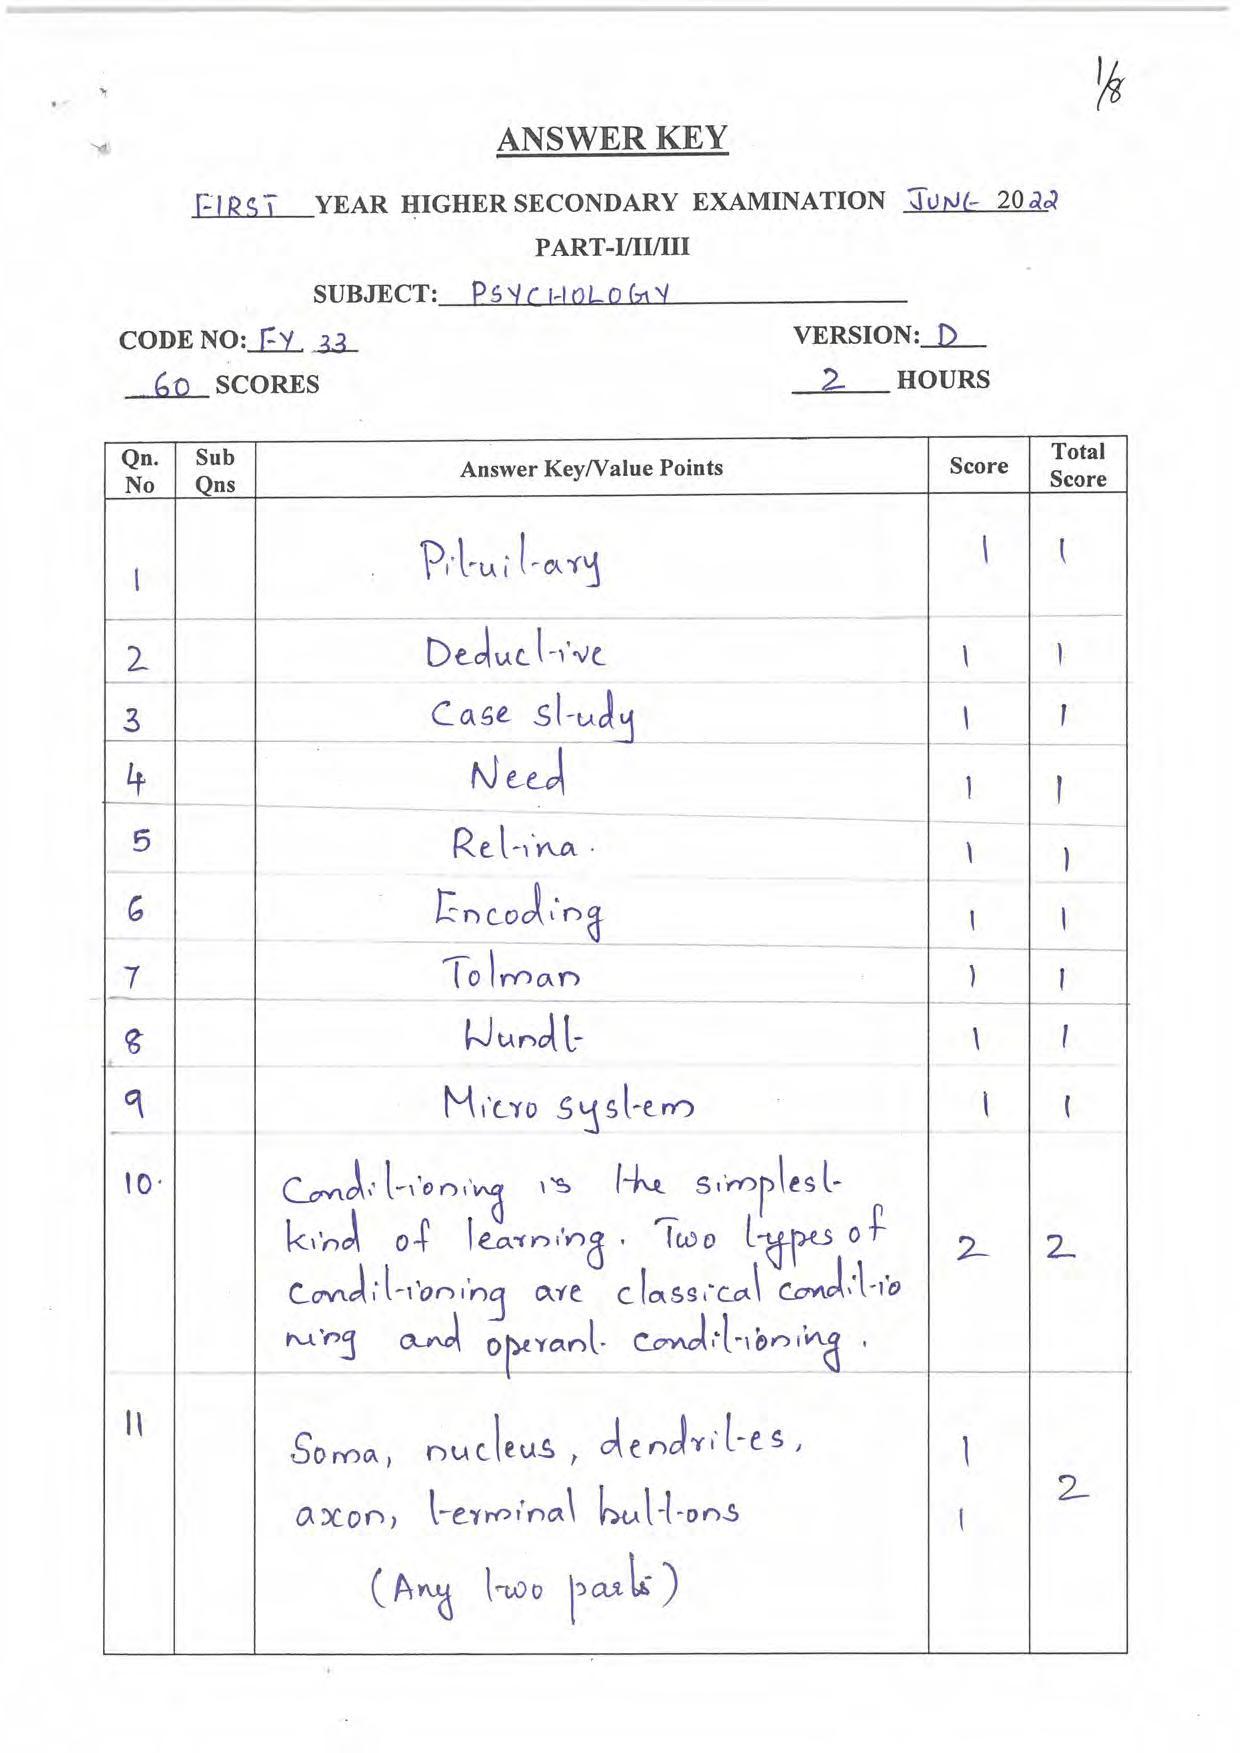 1/8
ANSWER KEY
FIRST YEAR HIGHER SECONDARY EXAMINATION JUNE 2022
PART-I/II/III
SUBJECT: PSYCHOLOGY
CODE NO: FY 33 VERSION: D
60 SCORES 2 HOURS
Qn. No Sub Qns Answer Key/Value Points Score Total Score
1 Pituitary 1 1
2 Deductive 1 1
3 Case study 1 1
4 Need 1 1
5 Retina. 1 1
6 Encoding 1 1
7 Tolman 1 1
8 Wundt 1 1
9 Micro system 1 1
10. Conditioning is the simplest
kind of learning. Two types of 2 2
conditioning are classical conditio
ning and operant conditioning.
11 Soma, nucleus, dendrites, 1
axon, terminal buttons 1 2
(Any two parts)